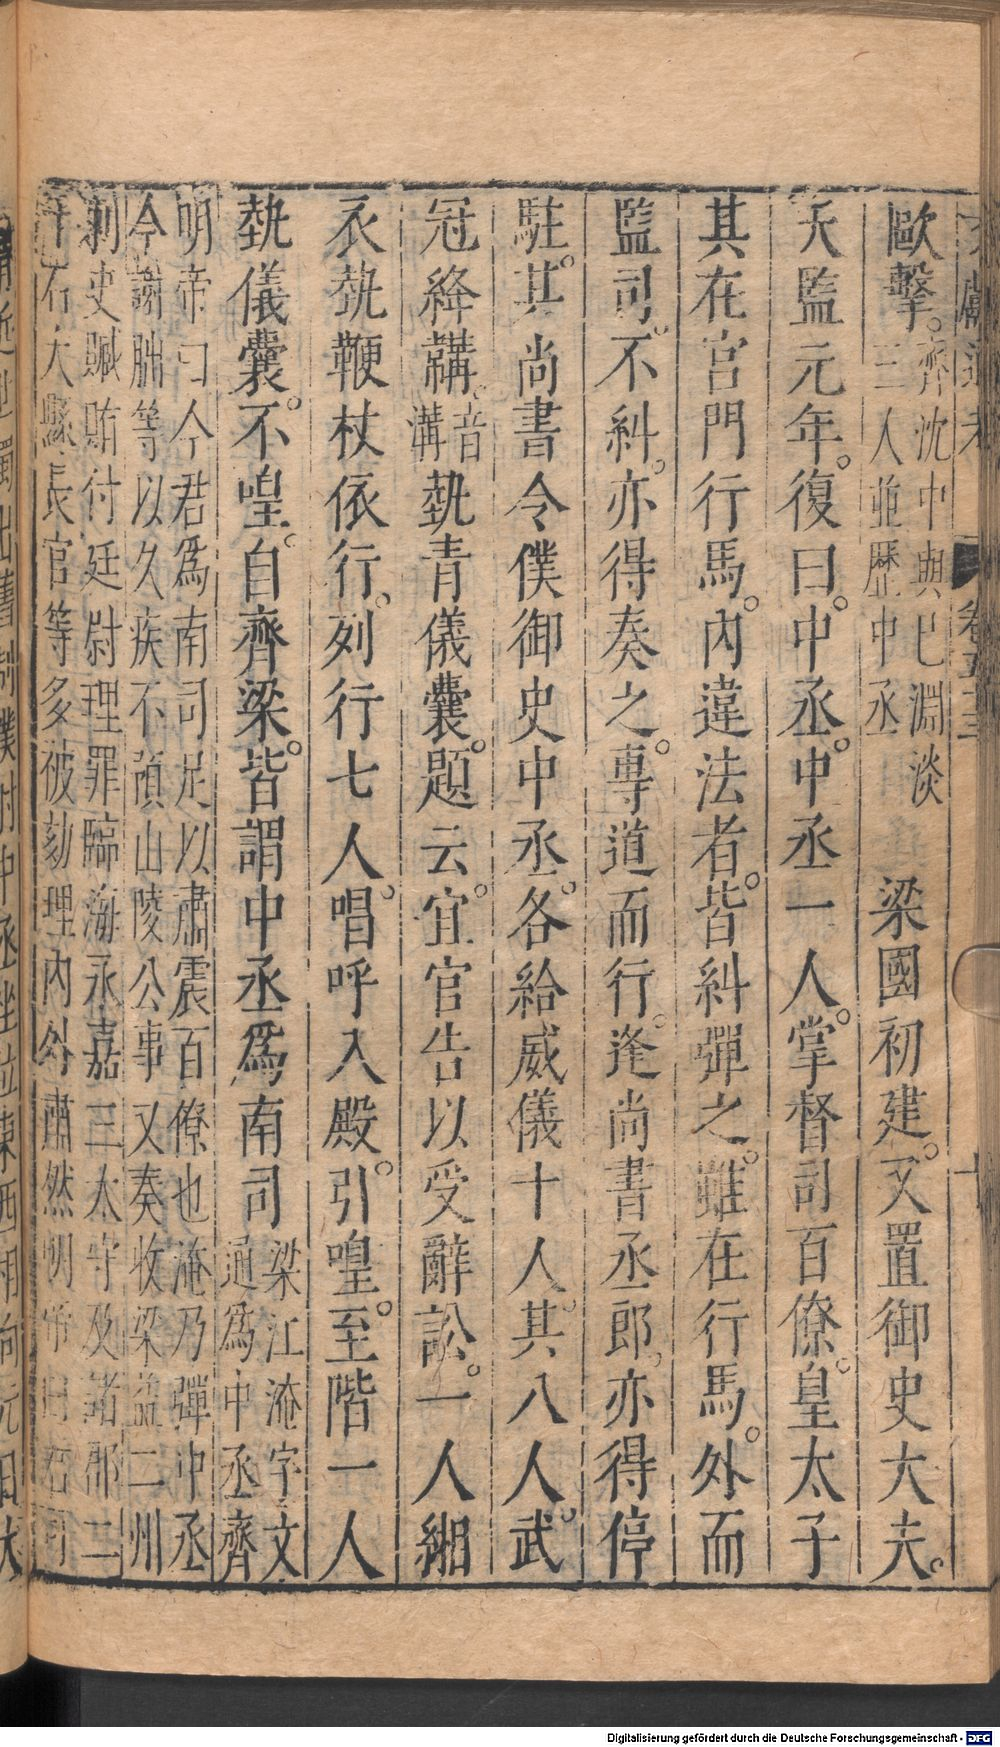 文獻通考 卷五十三 十
歐擊。齊沈中興已淵淡
三人並歷中丞 梁國初建。又置御史大夫。
天監元年。復曰。中丞。中丞一人。掌督司百僚。皇太子
其在宮門行馬。內違法者。皆糾彈之。雖在行馬。外而
監司。不糾。亦得奏之。專道而行。逢尚書丞郎。亦得停
駐。其尚書令僕御史中丞。各給威儀十人。其八人。武
冠絳韝。音
溝執青儀囊。題云。宜官告以受辭訟。一人緗
衣執鞭杖依行。列行七人。唱呼入殿。引喤。至階一人
執儀囊。不喤。自齊梁。皆謂中丞爲南司梁江淹字文
通爲中丞齊
明帝曰今君爲南司足以肅震百僚也淹乃彈中丞
今謝朏等以久疾不預山陵公事又奏收梁益二州
刺史贓賄付廷尉理罪臨海永嘉三太守及諸郡二
千石大縣長官等多被劾理內外肅然明帝曰君可
Digitalisierung gefördert durch die Deutsche Forschungsgemeinschaft - DFG